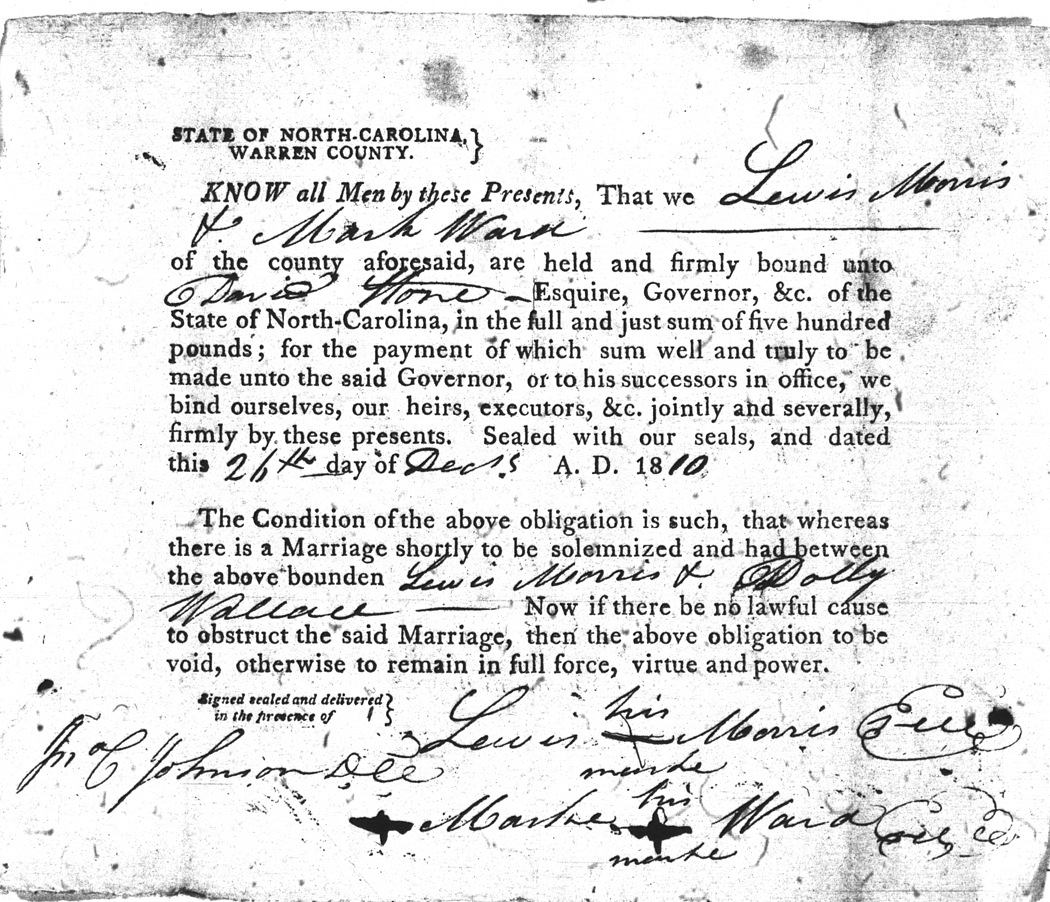 STATE OF NORTH-CAROLINA, }
WARREN COUNTY.
KNOW all Men by these Presents, That we Lewis Morris
& Mark Ward
of the county aforesaid, are held and firmly bound unto
David Stone - Esquire, Governor, &c. of the
State of North-Carolina, in the full and just sum of five hundred
pounds; for the payment of which sum well and truly to be
made unto the said Governor, or to his successors in office, we
bind ourselves, our heirs, executors, &c. jointly and severally,
firmly by these presents. Sealed with our seals, and dated
this 26th day of Decr. A. D. 1810
The Condition of the above obligation is such, that whereas
there is a Marriage shortly to be solemnized and had between
the above bounden Lewis Morris & Dolly
Wallace — Now if there be no lawful cause
to obstruct the said Marriage, then the above obligation to be
void, otherwise to remain in full force, virtue and power.
Signed sealed and delivered }
in the presence of
his
Lewis Morris
marke
Jno C Johnson
his
Marke Ward
marke